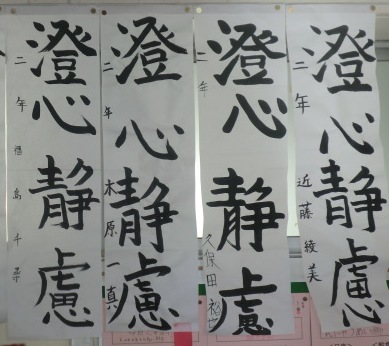 澄心静慮
二年 近藤綾美
澄心静慮
二年 久保田
澄心静慮
二年 木原一真
澄心静慮
二年 福島千